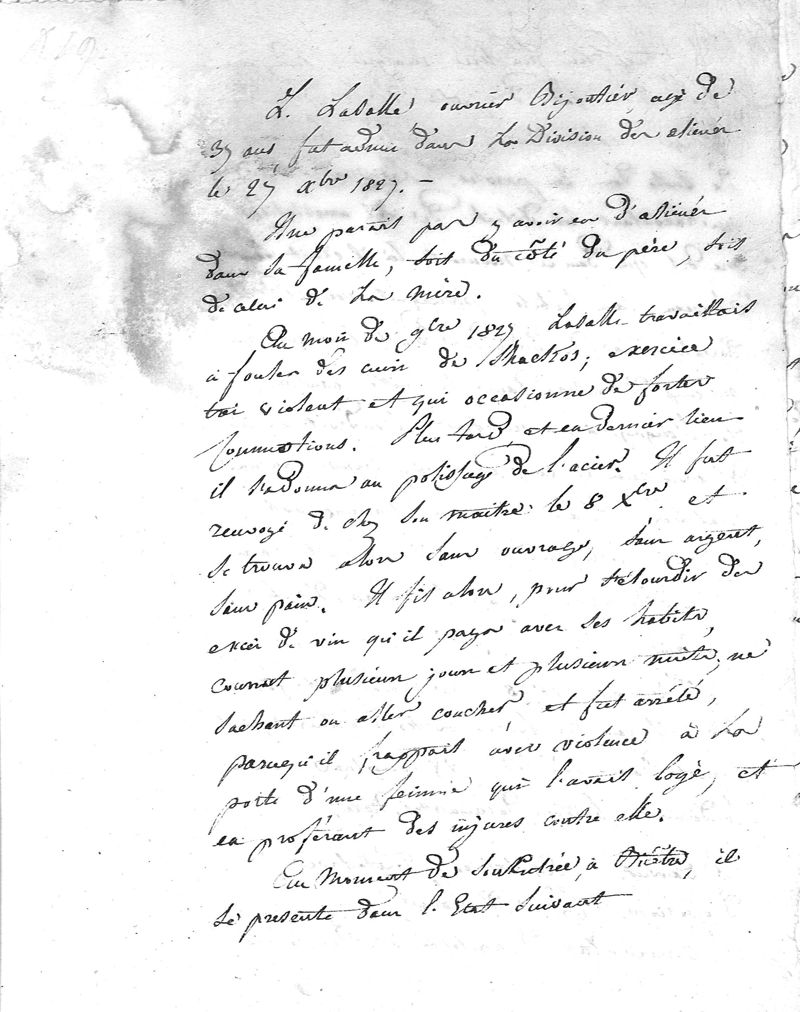 L. Lasalle, ouvrier Bijoutier, agé de
37 ans, fut admis dans La Division des aliénés
le 27 Xbre 1827. –
Il ne parait pas y avoir eu d'aliénés
dans sa famille, soit du côté du père, soit
de celui de La mère.
Au mois de 9bre 1827 Lasalle travaillait
à fouler des cuirs de Shackos; exercice
très violent et qui occasionne de fortes
commotions. Plus tard, et en dernier lieu
il s'adonna au polissage de l'acier. Il fut
renvoyé de chez son maître le 8 Xbre et
se trouva alors sans ouvrage, sans argent,
sans pain. Il fit alors, pour s'étourdir des
excès de vin qu'il paya avec ses habits,
courut plusieurs jours et plusieurs nuits, ne
sachant ou aller coucher, et fut arrêté,
parcequ'il frappait avec violence à La
porte d'une femme qui l'avait logé, et
en proférant des injures contre elle.
Au moment de son Entrée, à Bicêtre, il
se presente dans l'Etat suivant